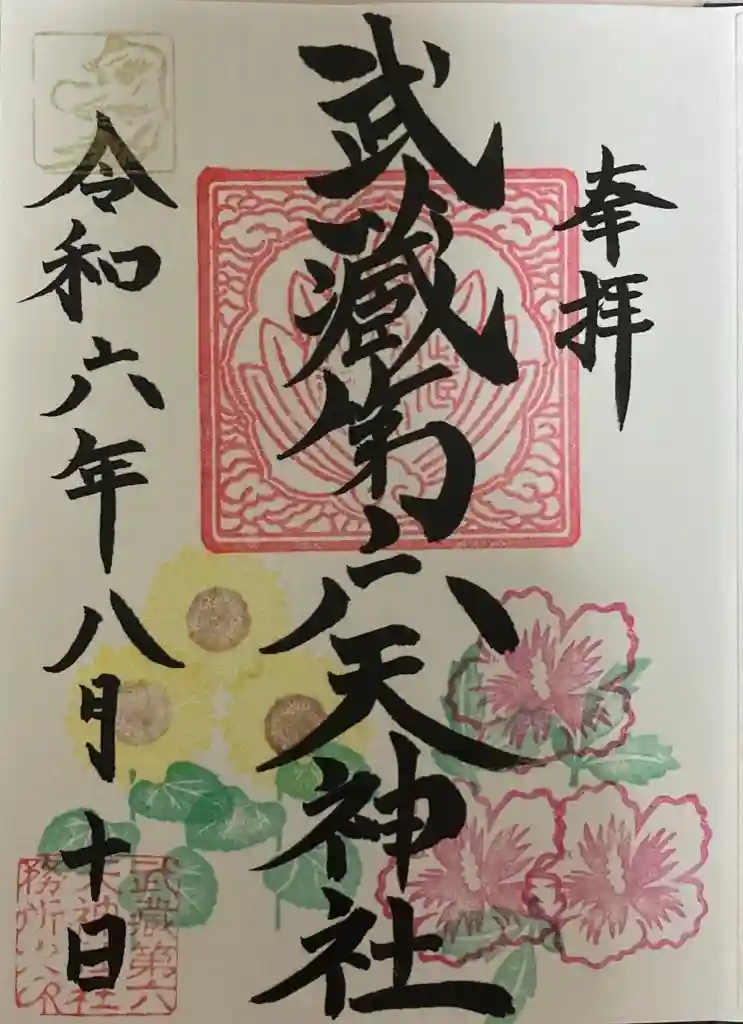 奉拝
武蔵第六天神社
令和六年八月十日
武蔵第六
天神社
務所印